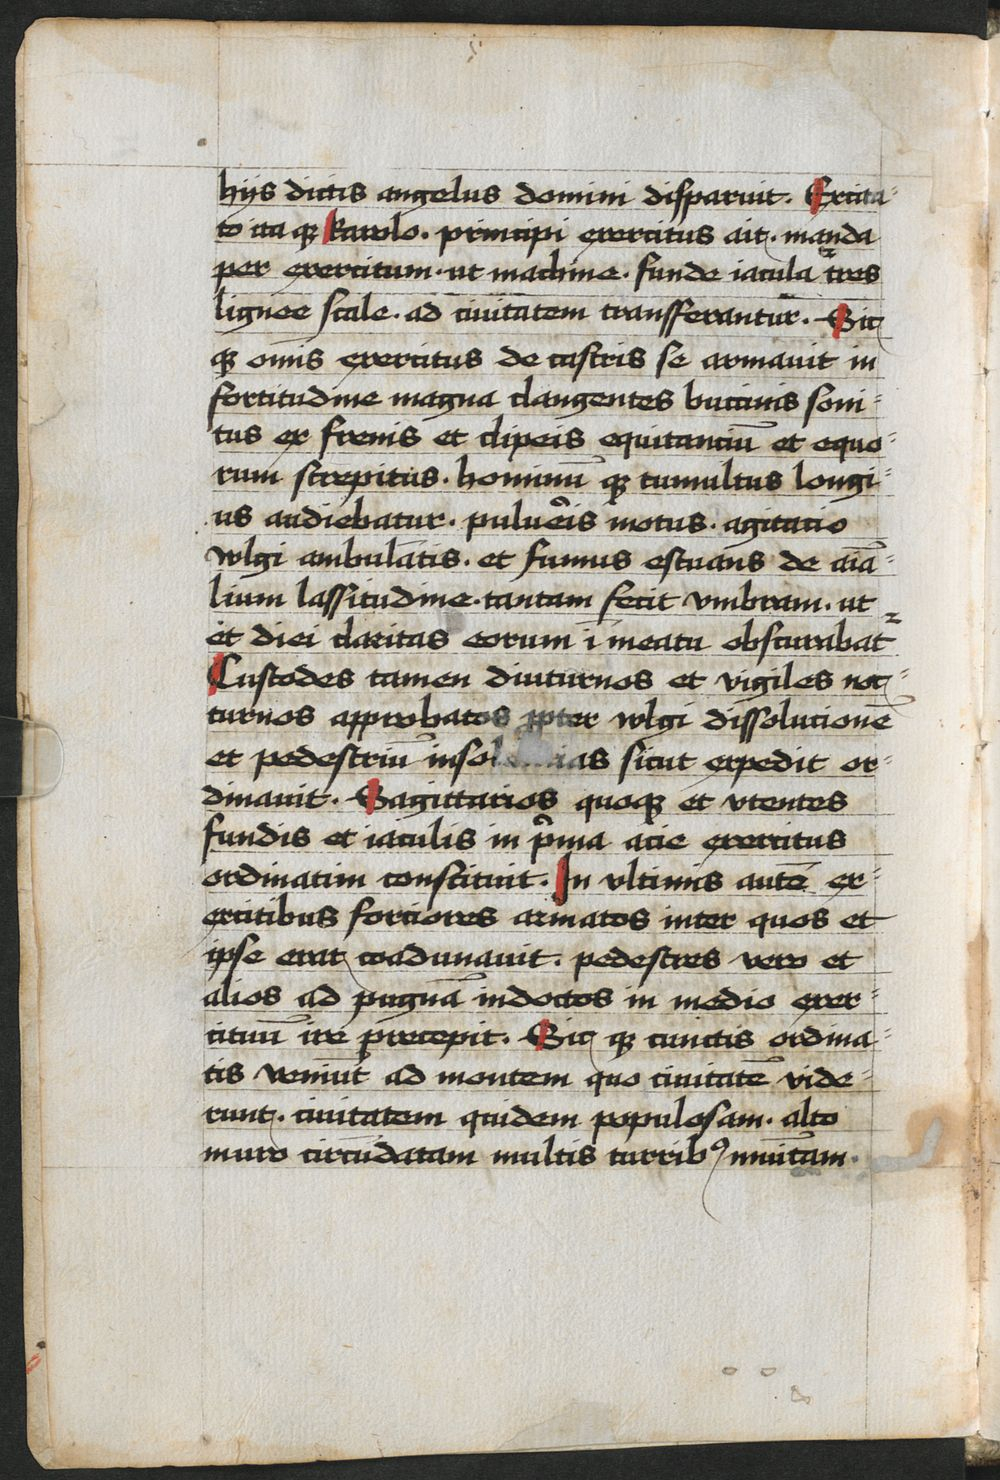 hijs dictis angelus domini disparuit. Excita-
to ita qꝫ Karolo. principi exercitus ait. manda
per exercitum. ut machine. funde iacula tres
lignee scale. ad ciuitatem transfferantur. Sic
qꝫ om̄is exercitus de castris se armauit in
fortitudine magna clangentes buccinis soni-
tus ex frenis et clipeis equitanciū et equo-
rum strepitus. hominū qꝫ tumultus longi-
us audiebatur. puluēis motus. agitacio
wlgi ambulātis. et fumus estuans de aīa-
lium lassitudine. tantam fecit vmbram. ut
et diei claritas eorum ī meatu obscurabat̄
Custodes tamen diuturnos et vigiles noc-
turnos approbatos ꝓpter wlgi dissolucionē
et pedestriū sicut expedit or-
dinauit. Sagittarios quoqꝫ et vtentes
fundis et iaculis in pͥma acie exercitus
ordinatim constituit. In vltimis autē ex-
ercitibus forciores armatos inter quos et
ipse erat coadunauit. pedestres vero et
alios ad pugnā indoctos in medio exer-
cituū ire precepit. Sic qꝫ cunctis ordina-
tis veniūt ad montem quo ciuitatē vide-
runt. ciuitatem quidem populosam. alto
muro circūdatam multis turribꝰ munitam.